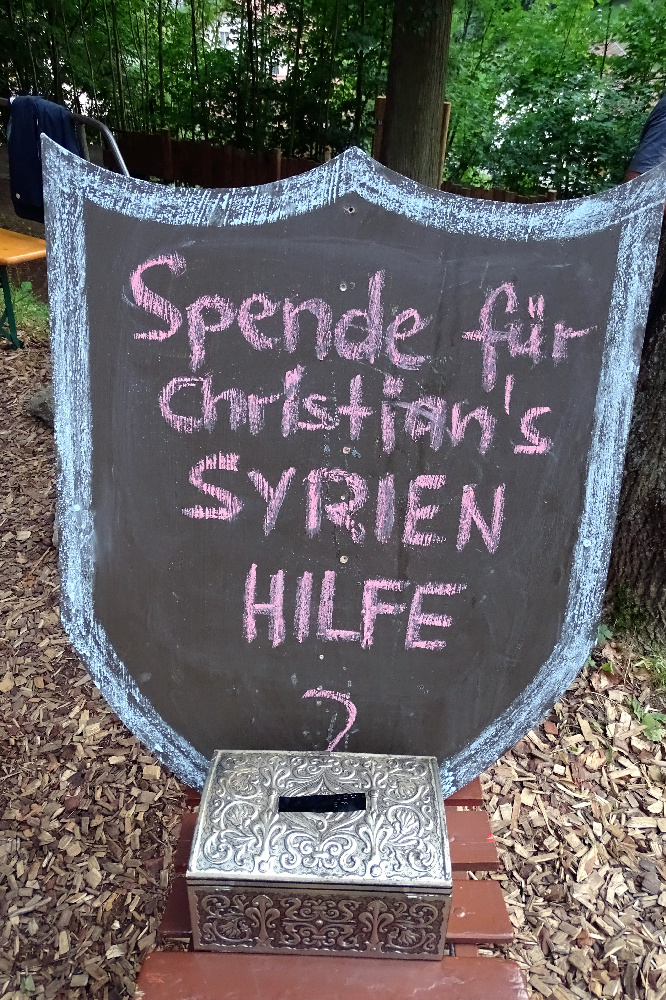 Spende für
Christian's
SYRIEN
HILFE
?